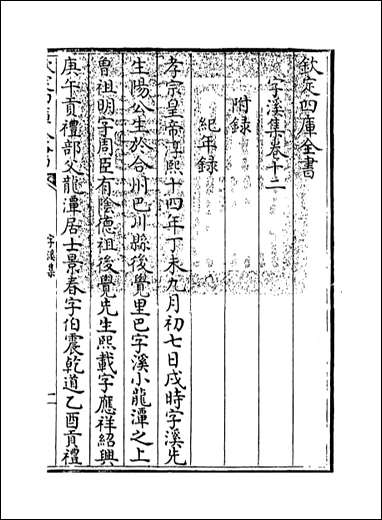 欽定四庫全書
字溪集卷十二
附錄
紀年錄
孝宗皇帝淳熙十四年丁未九月初七日戌時字溪先
生陽公生於合州巴川縣後覺里巴字溪小龍潭之上
曾祖明字周臣有陰德祖後覺先生熙載字應祥紹興
庚午貢禮部父龍潭居士景春字伯震乾道乙酉貢禮
字溪集